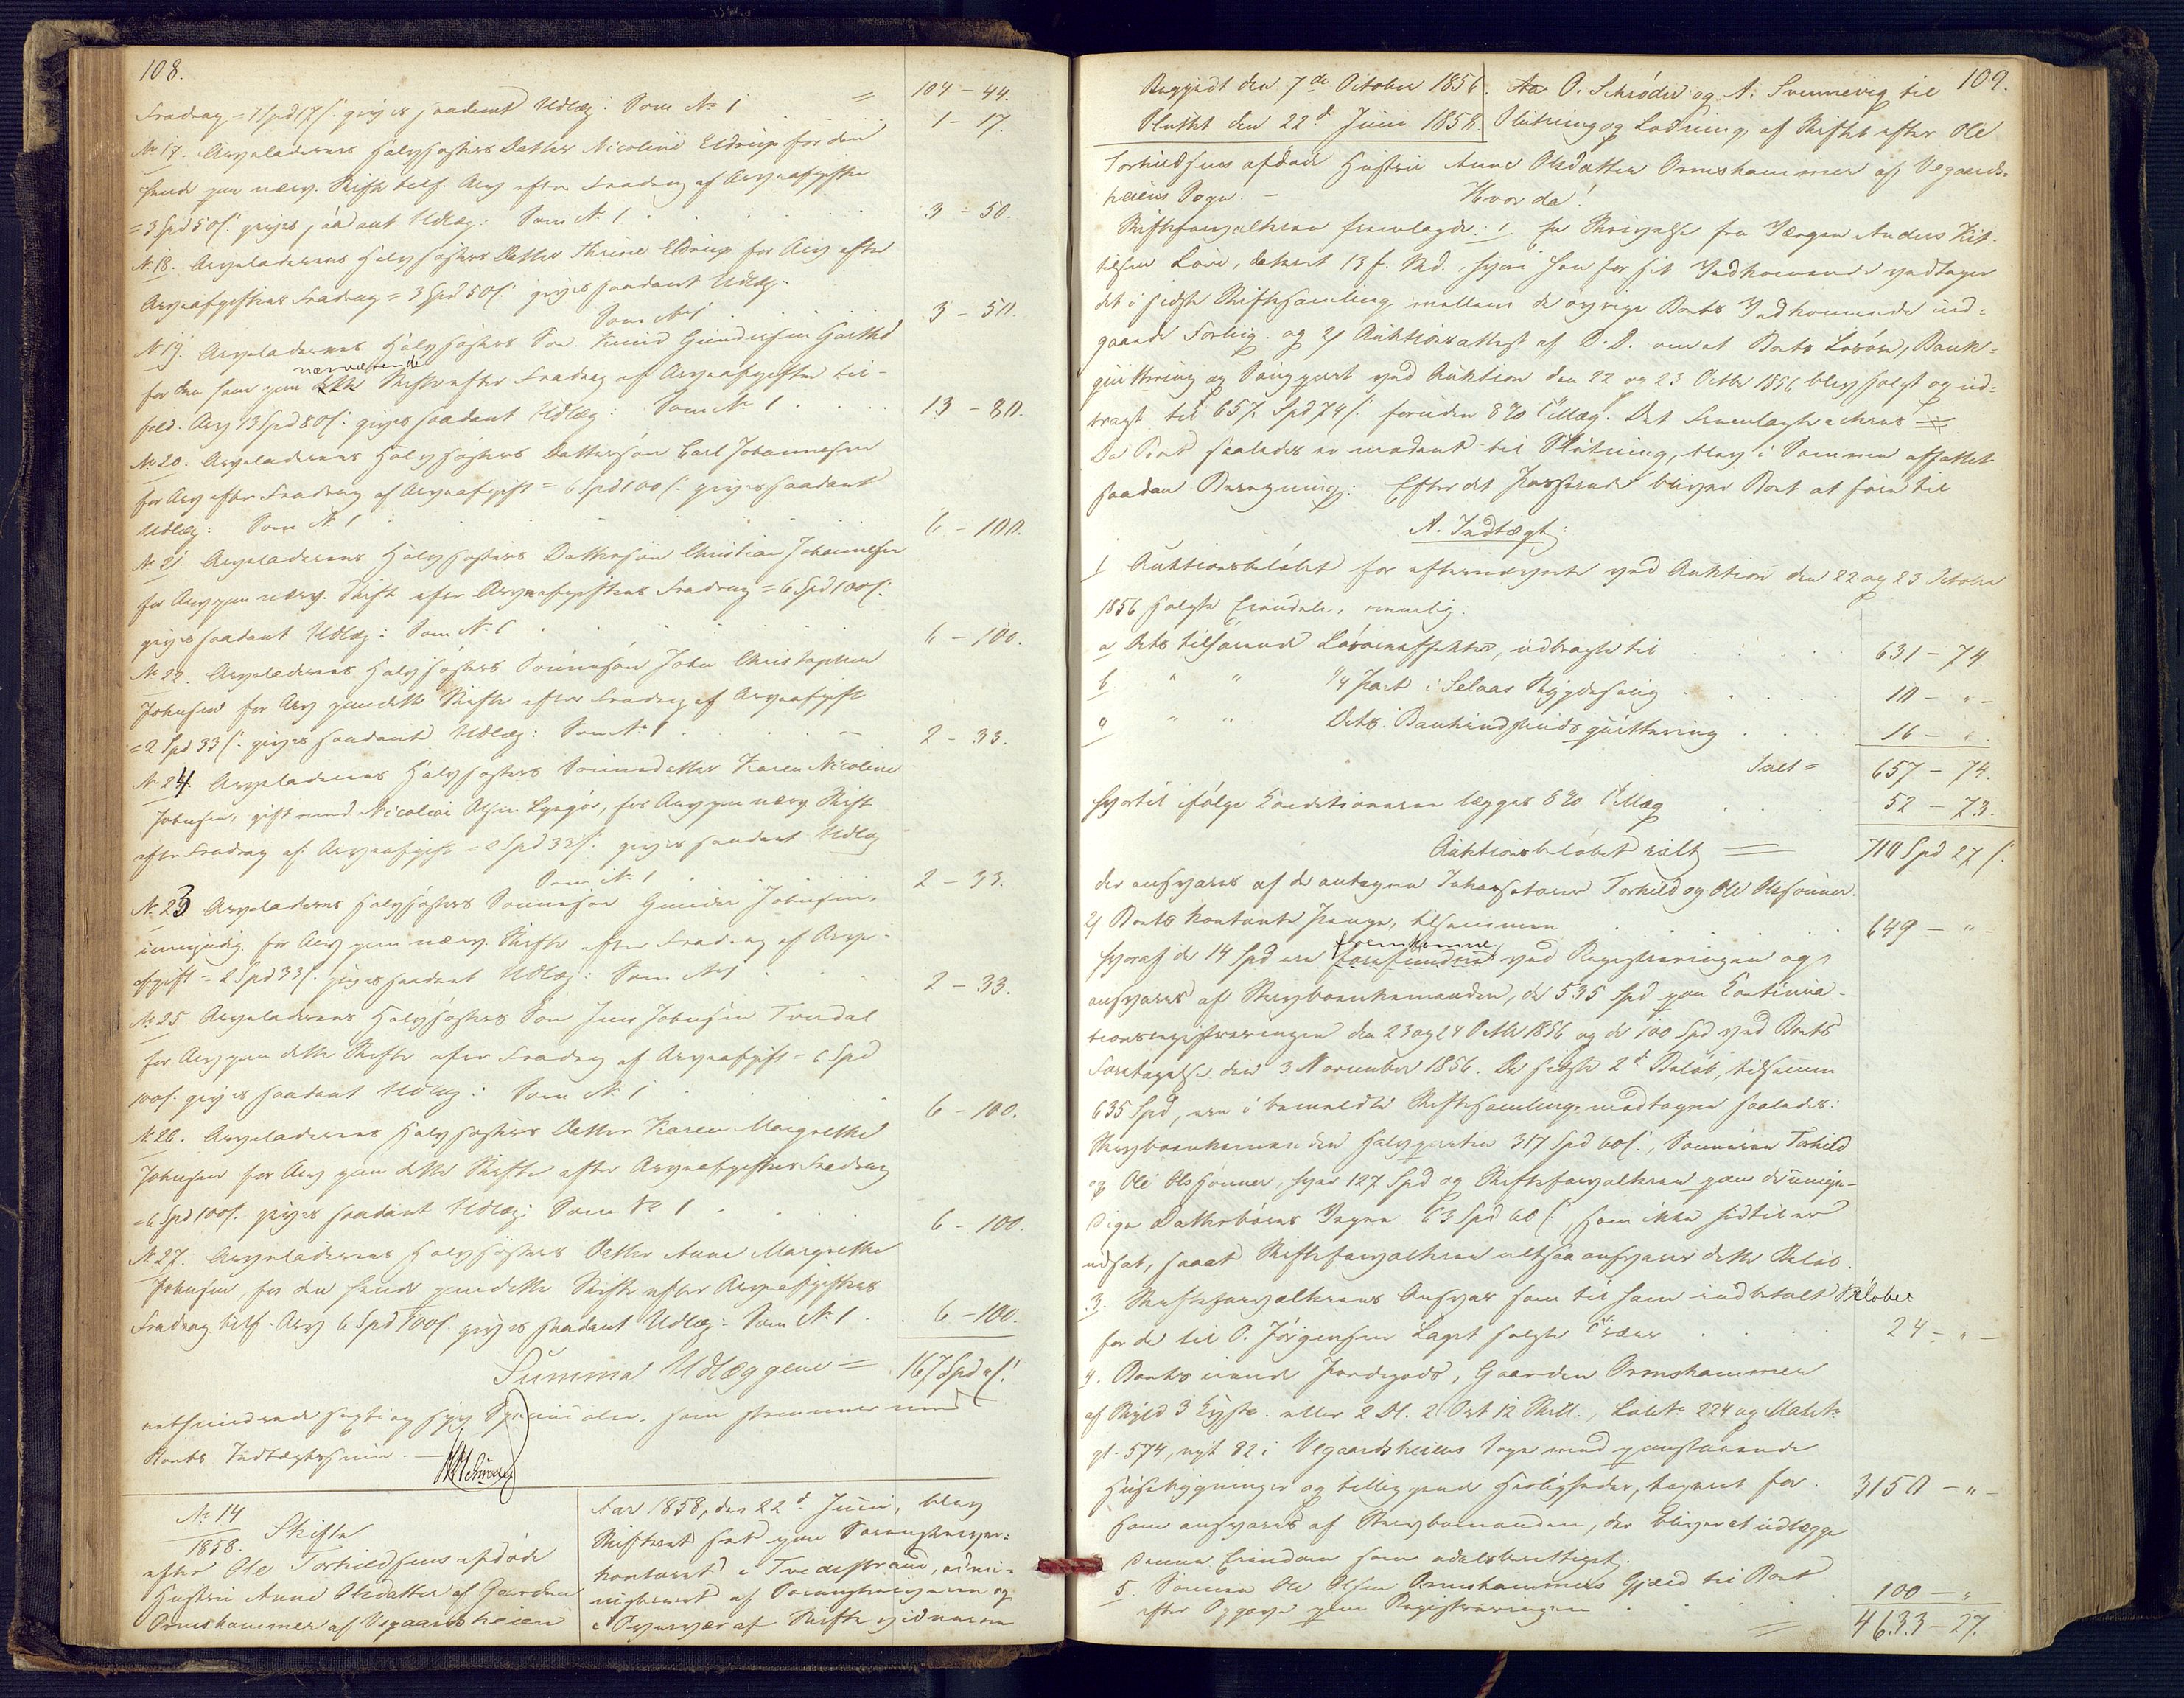 108.
104 - 44.
Fradrag = 1 Spd 17 s. gives saadant Udlæg: Som No 1 = 1 - 17.
No 17. Arveladerens Halvsøsters Datter Nicoline Eldrup for den
hende paa nærv. Skifte tilf. Arv efter Fradrag af Arveafgiften
= 3 Spd 50 s. gives saadant Udlæg: Som No 1 . . . 3 - 50.
No 18. Arveladerens Halvsøsters Datter Thrine Eldrup for Arv efter
Arveafgiftens Fradrag = 3 Spd 50 s. gives saadant Udlæg:
Som No 1 . . 3 - 50.
No 19. Arveladerens Halvsøsters Søn Knud Gundersen Garthe
nærværende
for den ham paa Skifte efter Fradrag af Arveafgiften til-
fald. Arv 13 Spd 80 s. gives saadant Udlæg: Som No 1 . . . 13 - 80.
No 20. Arveladerens Halvsøsters Dattersøn Carl Johannesen
for Arv efter Fradrag af Arveafgift = 6 Spd 100 s. gives saadant
Udlæg: Som No 1 . . . 6 - 100.
No 21. Arveladerens Halvsøsters Dattersøn Christian Johannesen
for Arv paa nærv. Skifte efter Arveafgiftens Fradrag = 6 Spd 100 s.
gives saadant Udlæg: Som No 1 . . . 6 - 100.
No 22. Arveladerens Halvsøsters Sønnesøn John Christopher
Johnsen for Arv paa dette Skifte efter Fradrag af Arveafgift
= 2 Spd 33 s. gives saadant Udlæg: Som No 1 . . . 2 - 33.
No 24. Arveladerens Halvsøsters Sønnedatter Karen Nicoline
Johnsen, gift med Nicolai Olsen Lyngør, for Arv paa nærv. Skifte
efter Fradrag af Arveafgift = 2 Spd 33 s. gives saadant Udlæg
Som No 1 . . . 2 - 33.
No 23. Arveladerens Halvsøsters Sønnesøn Gunder Johnsen,
umyndig, for Arv paa nærv. Skifte efter Fradrag af Arve-
afgift = 2 Spd 33 s. gives saadant Udlæg: Som No 1 . . . 2 - 33.
No 25. Arveladerens Halvsøsters Søn Jens Johnsen Tverdal
for Arv paa dette Skifte efter Fradrag af Arveafgift = 6 Spd
100 s. gives saadant Udlæg: Som No 1 . . . 6 - 100.
No 26. Arveladerens Halvsøsters Datter Karen Margrethe
Johnsen for Arv paa dette Skifte efter Arveafgiftens Fradrag
= 6 Spd 100 s. gives saadant Udlæg: Som No 1 . . . 6 - 100.
No 27. Arveladerens Halvsøsters Datter Anne Margrethe
Johnsen, for den hende paa dette Skifte efter Arveafgiftens
Fradrag tilf. Arv 6 Spd 100 s. gives saadant Udlæg: Som No 1 . . 6 - 100.
Summa Udlæggene = 167 Spd
som stemmer med
Boets Indtægtssum. -
No 14
1858. Skifte
efter Ole Torkildsens afdøde
Hustru Anne Olsdatter af Gaarden
Ormshammer af Vegaardsheien
Aar 1858, den 22d Juni, blev
Skifteret sat paa Sorenskriver-
kontoret i Tvedestrand, admi-
nistreret af Sorenskriveren og
i Overvær af Skiftevidnerne
109.
Begyndt den 7de October 1856.
Sluttet den 22d Juni 1858.
O. Schrøder og A. Svennevig til
Slutning og Lodning af Skiftet efter Ole
Torkildsens afdøde Hustru Anne Olsdatter Ormshammer af Vegaards-
heiens Sogn. - Hvorda!
Skifteforvalteren fremlagde: 1. En Skrivelse fra Værgen Anders Ket-
telsen Løvi, dateret 13 f. Md., hvori han for sit Vedkommende vedtager
det i sidste Skiftesamling mellem de øvrige Boets Vedkommende ind-
gaaede Forlig. og 2) Auktionsattest af D. D. om at Boets Løsøre, Bank-
quittering og Saugpart ved Auktion den 22 og 23 Octbr 1856 blev solgt og ud-
bragt til 657 Spd 74 s. foruden 8 % Tillæg. Det Fremlagte acteres
Da Boet saaledes er modent til Slutning, blev i Sammen affattet
saadan Beregning: Efter det Passerede bliver Boet at føre til
A. Indtægt:
1 Auktionsbeløbet for efternævnte ved Auktion den 22 og 23 October
1856 solgte Eiendele, nemlig:
a Boets tilhørende Løsøreeffekter, udbragte til . . . 631 - 74.
b " " 1/4 Part i Selaas Bygdesaug . . . 10 - " -
c " " Dets Bankindskudsquittering . . . 16 - " .
Ialt = 657 - 74.
hvortil ifølge Konditionerne lægges 8 % Tillæg . . . 52 - 73.
Auktionsbeløbet ialt = 710 Spd 27 s.
der ansvares af de antagne Inkassatorer Torkild og Ole Olssønner.
2) Boets kontante Penge, tilsammen . . . 649 - " -
fremkomne
hvoraf de 14 Spd ere forefundne ved Registreringen og
ansvares af Stervboenkemanden, de 535 Spd paa Continua-
tionsregistreringen den 23 og 24 Octbr 1856 og de 100 Spd ved Boets
Foretagelse den 3 November 1856. De sidste 2de Beløb, tilsammen
635 Spd, ere i bemeldte Skiftesamling modtagne saaledes:
Stervboenkemanden Halvparten 317 Spd 60 s., Sønnerne Torkild
og Ole Olssønner, hver 127 Spd og Skifteforvalteren paa de umyn-
dige Datterbørns Vegne 63 Spd 60 s., som ikke hidtil er
udsat, saaat Skifteforvalteren altsaa ansvarer dette Beløb.
3. Skifteforvalterens Ansvar som til ham indbetalt Beløbet
for de til O. Jørgensen Laget solgte . . . 24 - " -
4. Boets iøvrige Jordegods, Gaarden Ormshammer
af Skyld 3 Engsl. eller 2 Dl. 2 Ort 12 Skill., Løbe No 224 og Matr. No
gl. 574, nyt 82 i Vegaardsheiens Sogn med paastaaende
Huusebygninger og tilliggende Herligheder, taxeret for . 3150 - " -
som ansvares af Stervbomanden, der bliver at udlægge
denne Eiendom som odelsberettiget.
5. Sønnen Ole Olsen Ormshammers Gjæld til Boet
efter Opgave paa Registreringen . . . 100 - "
= 4633 - 27.